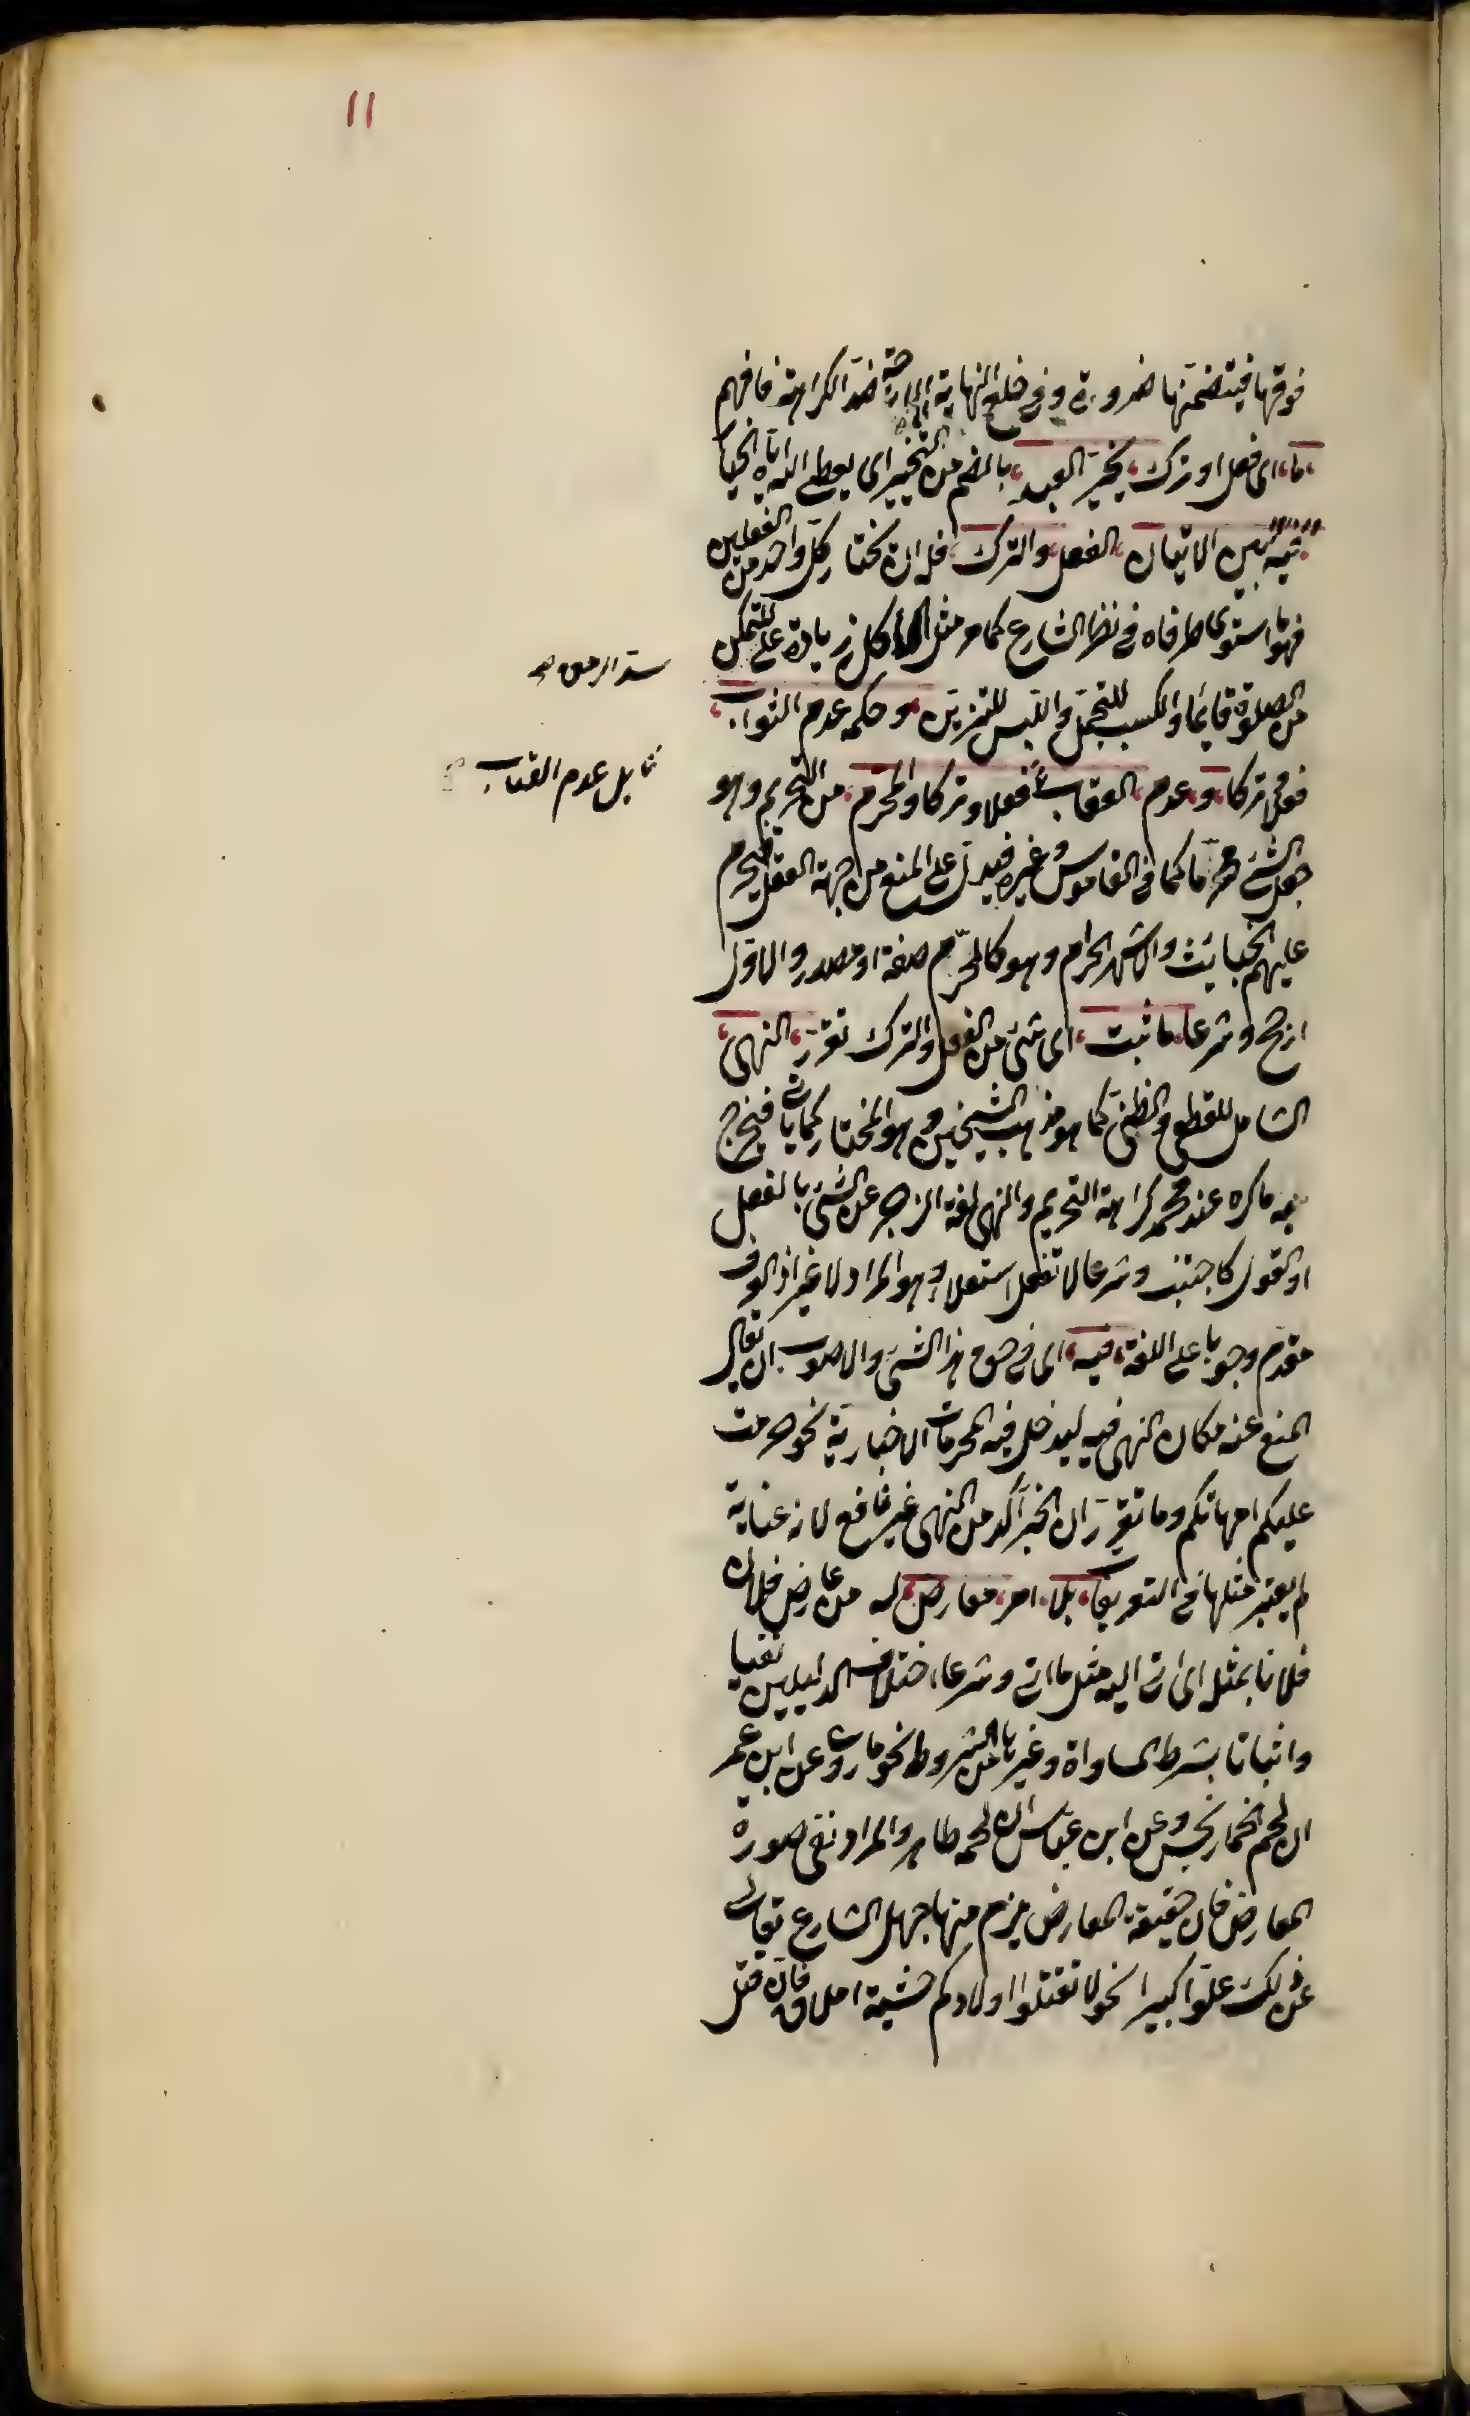 ١١
فوقها فيتضمنها ضرورة وفي خلع النهاية الاباحة ضد الكراهة فافهم
ما اى فعل او ترك يخير العبد بالضم من التخيير اى يعطى الله اياه الخيار
فيه بين الاتيان الفعل والترك فله ان يختار كل واحد من الفعلين
فهو ما استوى طرفاه في نظر الشارع كما مر مثل الاكل زيادة على
سد الرمق
للتمكن من الصلوة قائما والكسب للتجمل واللبس للتزين وحكمه عدم الثواب
فعلا وتركا وعدم العقاب فعلا وتركا والمحرم من التحريم وهو
بل عدم العقاب
جعل الشئ محرما كما في القاموس وغيره فيدل على المنع من جهة العقل فيحرم
عليهم الخبايث والاشهر الحرام وهو كالمحرم صفة او مصدر والاول
ارجح وشرعا ما ثبت اى شئ من الفعل والترك تقرر النهى
الشامل للقطعي والظني كما هو مذهب الشيخين وهو المختار كما ياتى فيخرج
به ما كره عند محمد كراهة التحريم والنهى لغة الزجر عن الشئ بالفعل
او القول كاجتنب وشرعا لا تفعل استعلاء وهو المراد لا غير اذ العرف
مقدم وجوبا على اللغة فيه اى في حق هذا الشئ والاصوب ان يقال
المنع عنه مكان النهى فيه ليدخل فيه المحرمات الاخبارية نحو حرمت
عليكم امهاتكم وما تقرر ان الخبر آكد من النهى غير نافع لانه عناية
لم يعتبر مثلها في التعريف بلا امر معارض له من عارض فلان
فلانا بمثل اى اتى اليه مثل ما اتى وشرعا اختلاف الدليلين نفيا
واثباتا بشرط المساواة وغيرها من الشروط نحو ما روى عن ابن عمر
ان لحم الحمار نجس وعن ابن عباس ان لحمه طاهر والمراد نفى صورة
المعارض فان حقيقة المعارض يلزم منها جهل الشارع تعالى
عن ذلك علوا كبيرا نحو لا تقتلوا اولادكم خشية املاق فان قتل